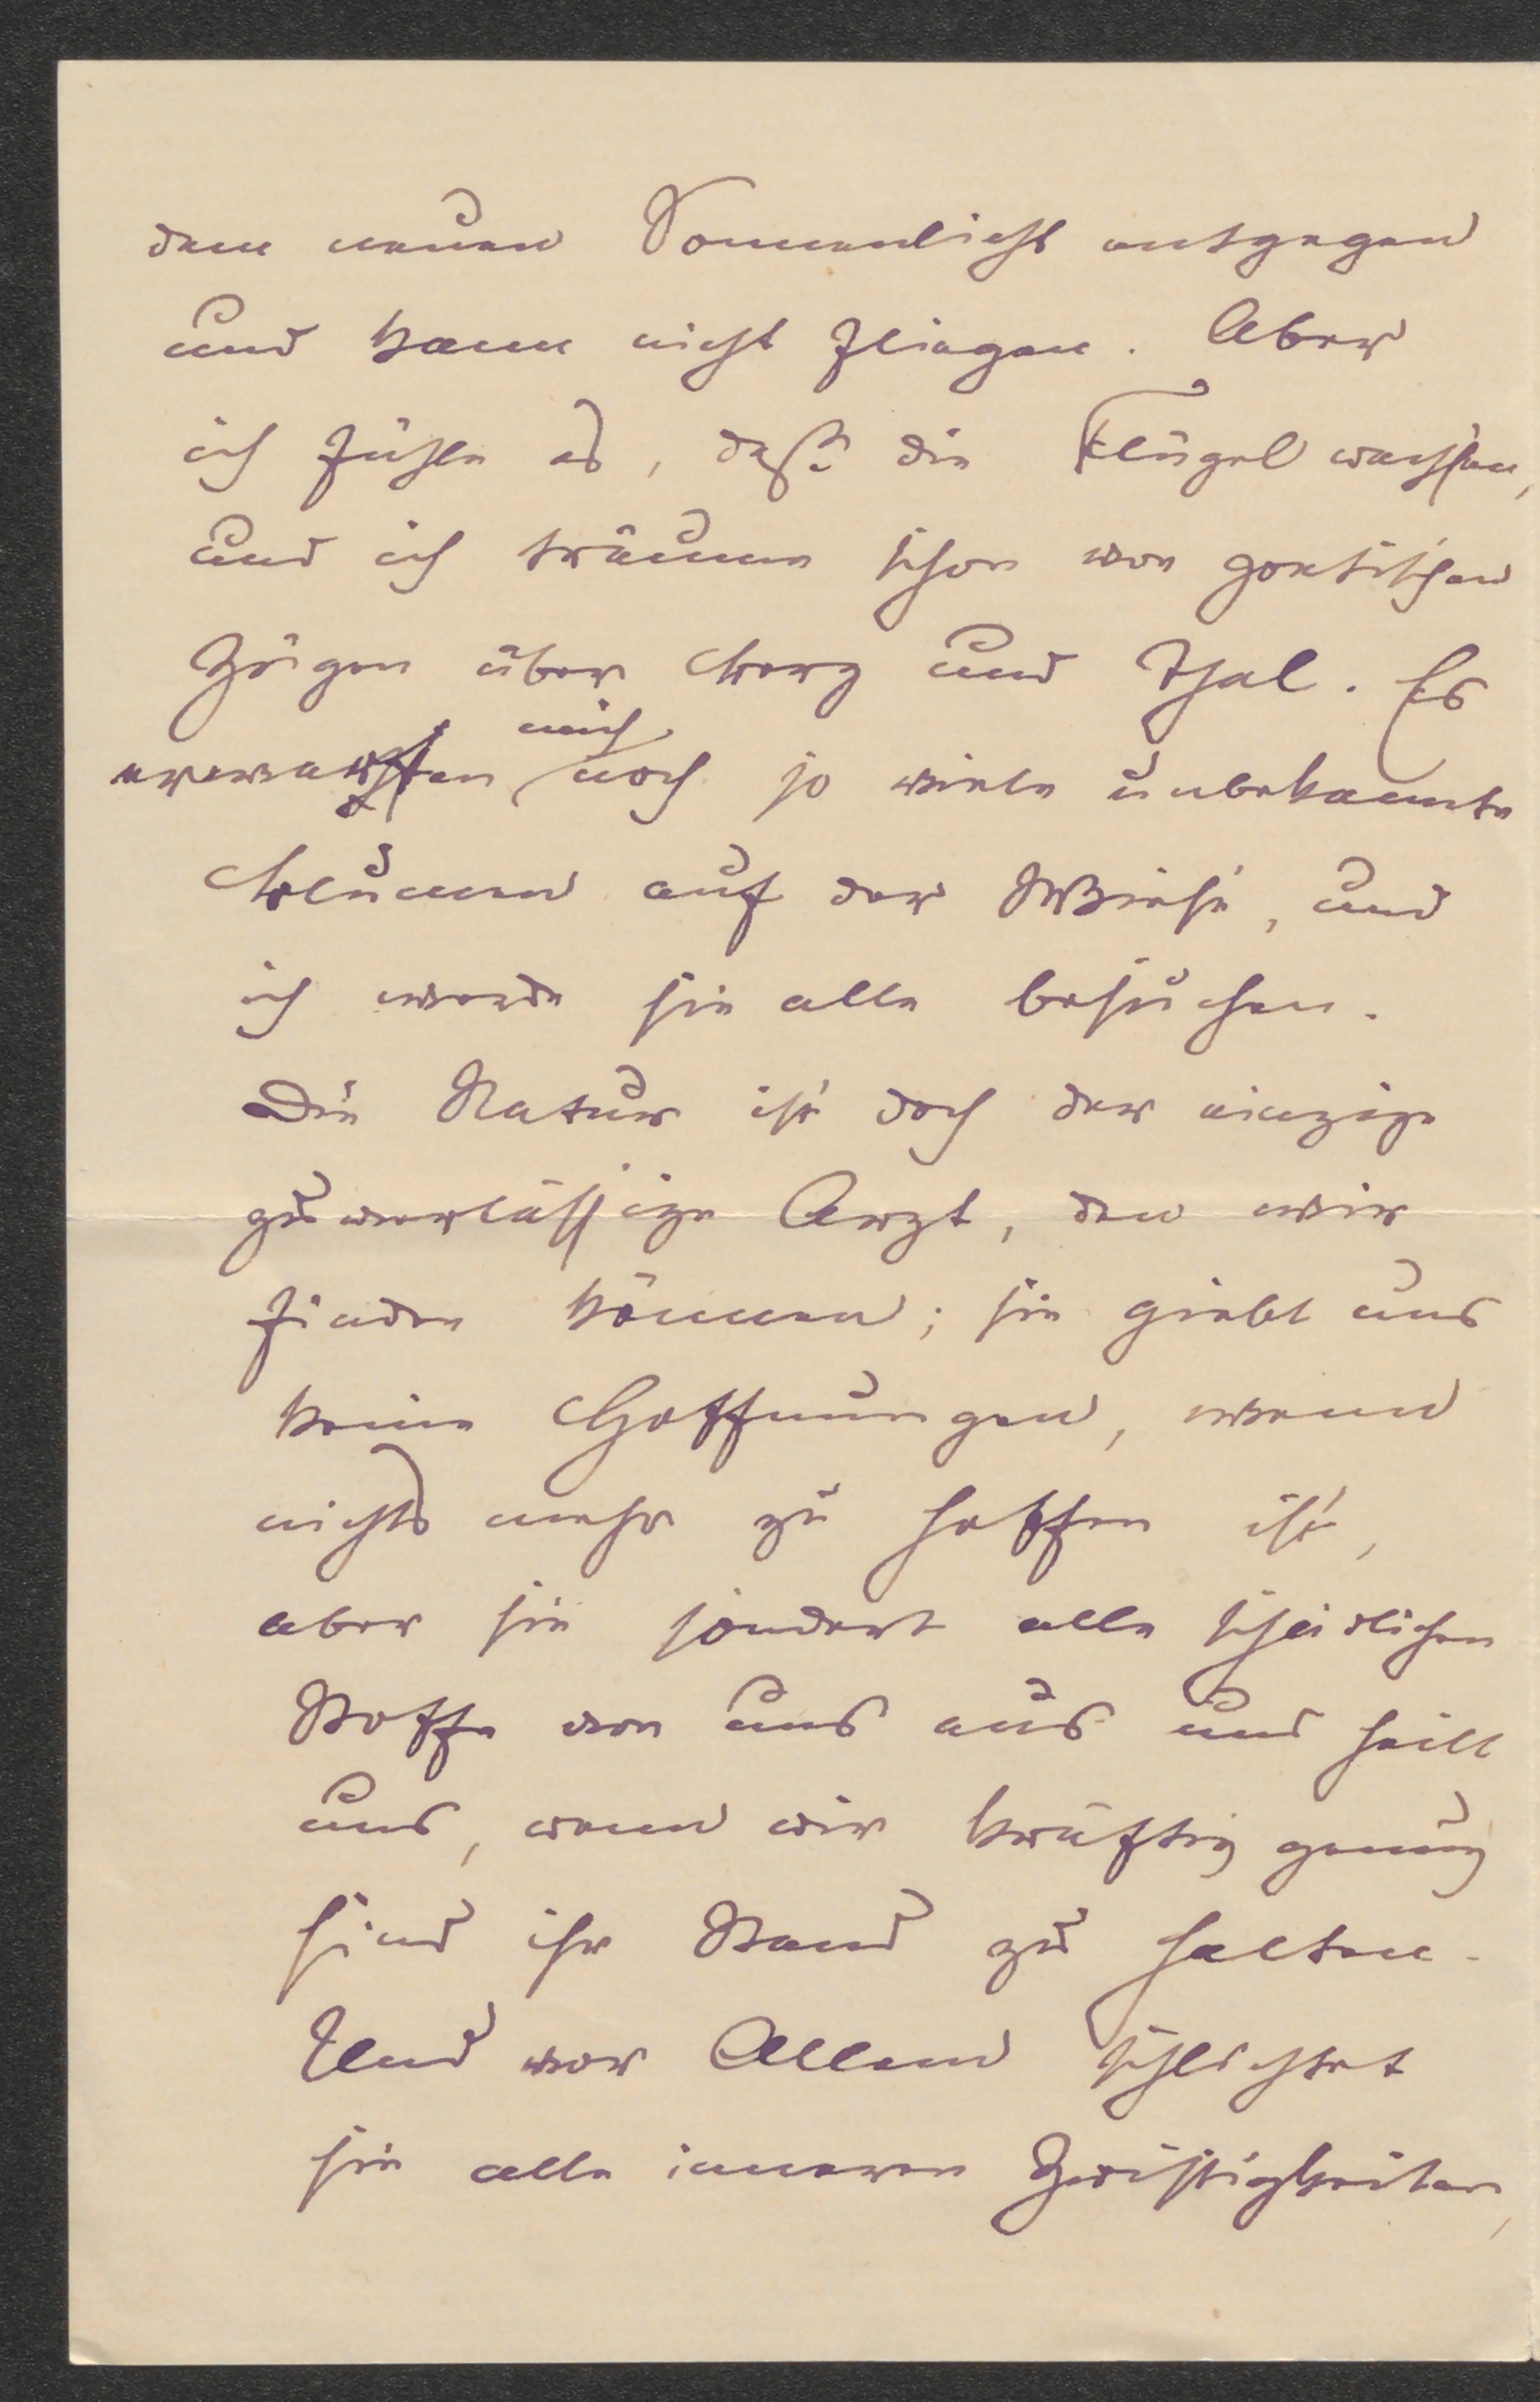 dem neuen Sonnenlicht entgegen
und kann nicht fliegen. Aber
ich fühle es, daß die Flügel wachsen,
und ich träume schon von poetischen
Zügen über Berg und Thal. Es
erwarten mich noch so viele unbekannte
Blumen auf der Wiese, und
ich werde sie alle besuchen.
Die Natur ist doch der einzige
zuverlässige Arzt, den wir
finden können; sie giebt uns
keine Hoffnungen, wenn
nichts mehr zu hoffen ist,
aber sie sondert alle schädlichen
Stoffe von uns aus und heilt
uns, wenn wir kräftig genug
sind ihr Stand zu halten.
Und vor Allem schlichtet
sie alle inneren Zwistigkeiten,